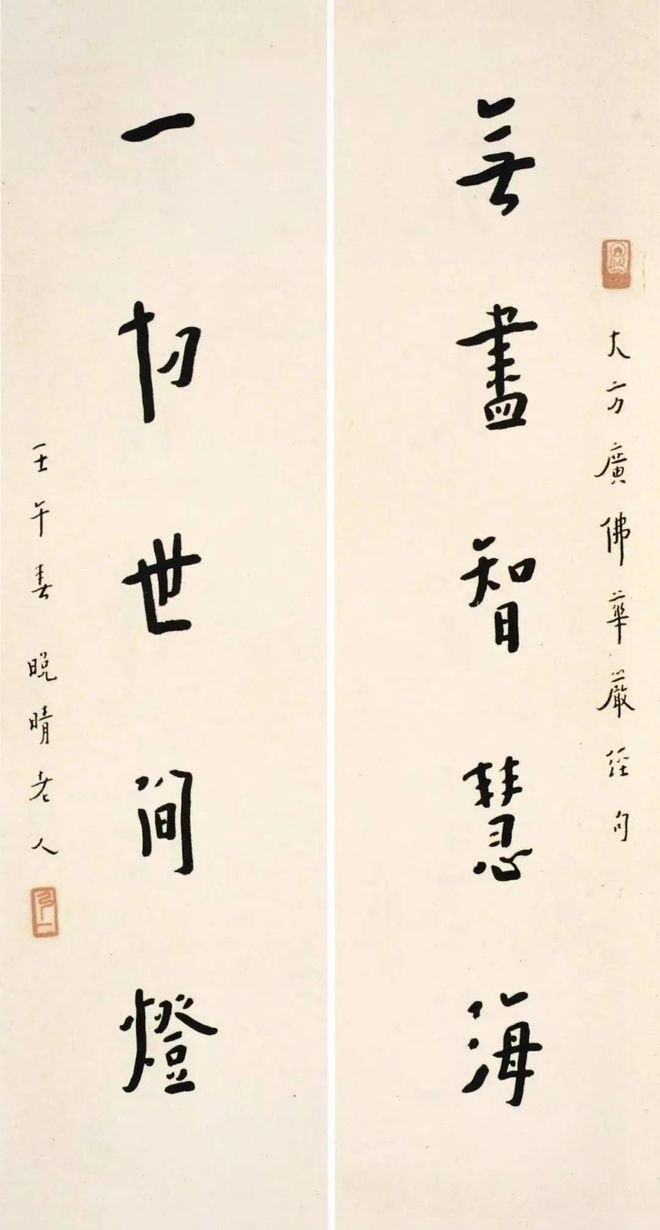 大方廣佛華嚴經句
無盡智慧海
一切世間燈
壬午春晚晴老人